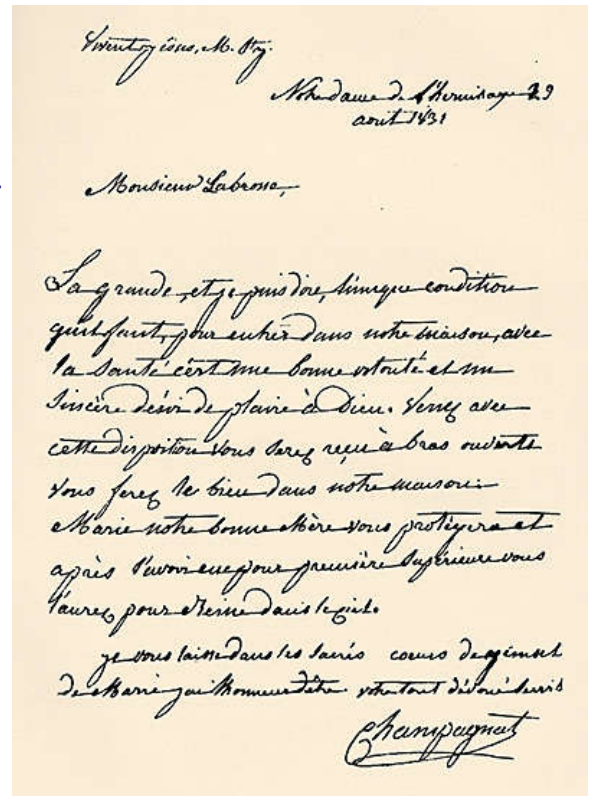 Vivent Jésus, M. Ph J.
Notre dame de l'hermitage 29
août 1831
Monsieur Labrosse,
La grande, et je puis dire, l'unique condition
qu'il faut, pour entrer dans notre maison, avec
la santé c'est une bonne volonté et un
sincère désir de plaire à Dieu. Venez avec
cette disposition vous serez reçu à bras ouverts
vous ferez le bien dans notre maison.
Marie notre bonne Mère vous protégera et
après l'avoir eue pour première supérieure vous
l'aurez pour Reine dans le ciel.
je vous laisse dans les sacrés coeurs de Jésus et
de Marie j'ai l'honneur d'être votre tout dévoué servit
Champagnat